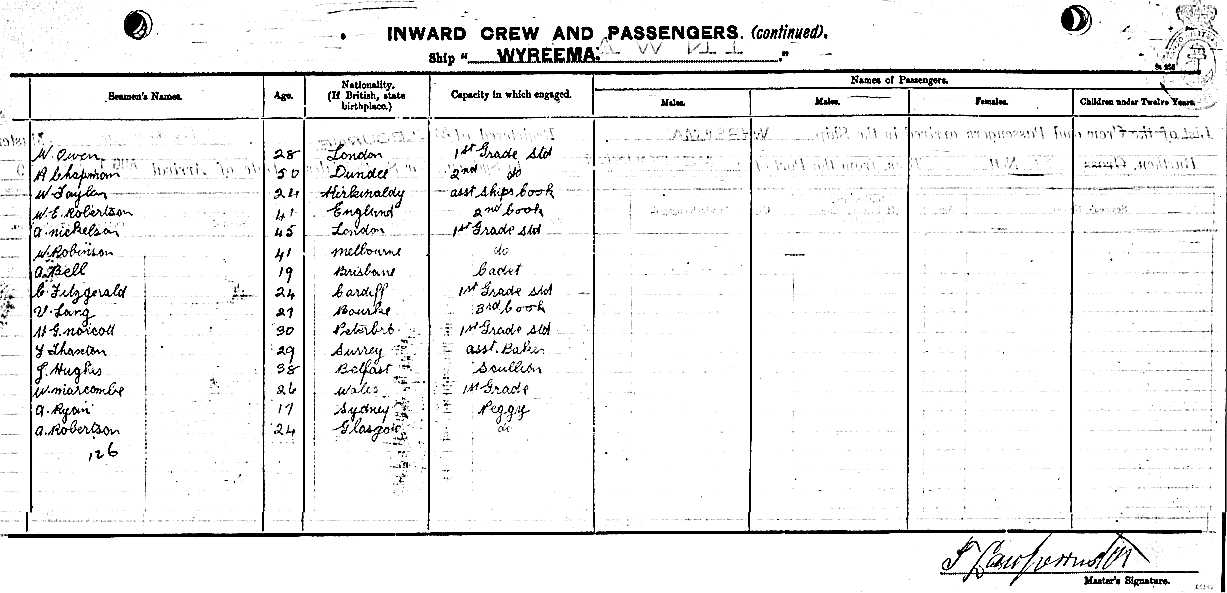 INWARD CREW AND PASSENGERS. (continued).
Ship "WYREEMA."
Seamen's Names. Age. Nationality. (If British, state birthplace.) Capacity in which engaged. Names of Passengers.
Males. Males. Females. Children under Twelve Years.
W. Owen 28 London 1st Grade Std
A Chapman 50 Dundee 2nd do
W. Taylor 24 Kirkcaldy asst Ships Cook
W. E. Robertson 41 England 2nd Cook
A. Nickelson 45 London 1st Grade Std
W. Robinson 41 Melbourne do
A. Bell 19 Brisbane Cadet
C. Fitzgerald 24 Cardiff 1st Grade Std
V. Lang 27 Bourke 3rd Cook
G. Norcott 30 Peterbro 1st Grade Std
Thaxton 29 Surrey asst. Baker
J. Hughes 38 Belfast Scullion
W. Marcombe 26 Wales 1st Grade
A. Ryan 17 Sydney Peggy
A. Robertson 24 Glasgow do
126
Master's Signature.